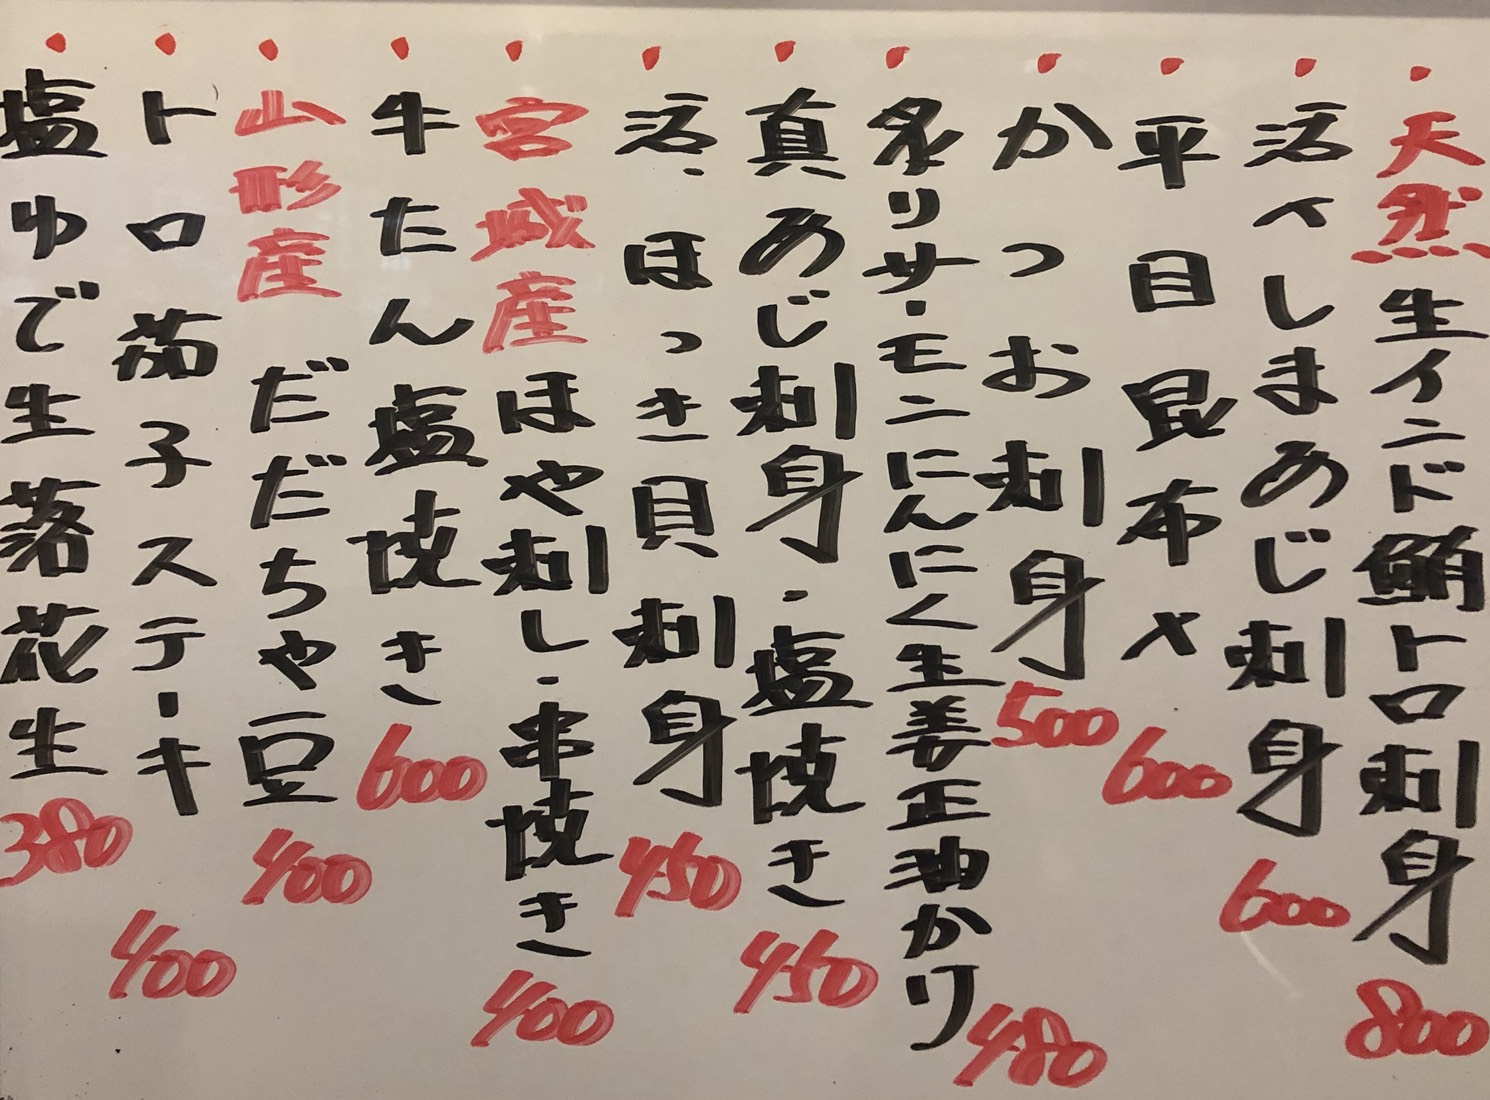 ・天然生インド鮪トロ刺身 800
・活〆しまあじ刺身 600
・平目昆布〆 600
・かつお刺身 500
・炙りサーモンにんにく生姜正油かけ 480
・真あじ刺身・塩焼き 450
・活ほっき貝刺身 450
・宮城産ほや刺し・串焼き 400
・牛たん塩焼き 600
・山形産だだちゃ豆 400
・トロ茄子ステーキ 400
・塩ゆで生落花生 380